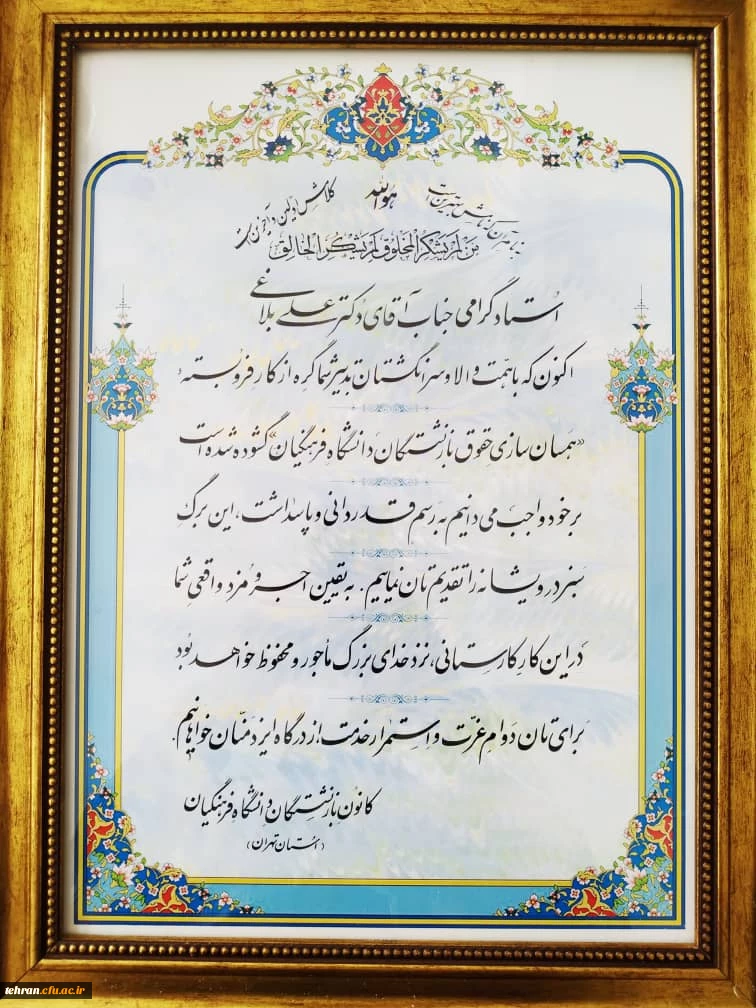 هوالله
مَن لَم یَشکُرِ المَخلوق لَم یَشکُرِ الخالِق
اُستاد گرامی جناب آقای دکتر علی بلاغی
اکنون که با همّت والا و سرانگشتان تدبیر شما گره از کار فروبسته
«همسان سازی حقوق بازنشستگان دانشگاه فرهنگیان» گشوده شده است
بر خود واجب می دانیم به رسم قدردانی و پاسداشت، این برگ
سبز درویشانه را تقدیم تان نماییم. به یقین اجر و مُزد واقعی شما
در این کار کارستانی، نزد خدای بزرگ مأجور و محفوظ خواهد بود
برای تان دوام عزّت و استمرار خدمت از درگاه ایزد منّان خواهانیم.
کانون بازنشستگان دانشگاه فرهنگیان
(استان تهران)
tehran.cfu.ac.ir